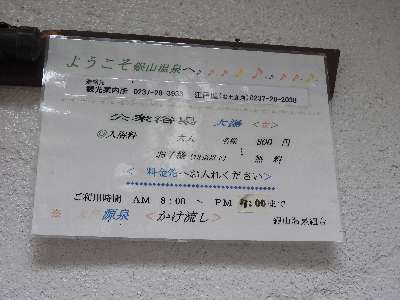 ようこそ銀山温泉へ♪
観光案内所 0237-28-3933
公衆浴場 大湯 <女>
◎入浴料 大人 名様 : 300 円
お子様 : 無料
< 料金先へお入れください>
ご利用時間 AM 8:00 ~ PM :00まで
※ 源泉 <かけ流し>
銀山温泉組合